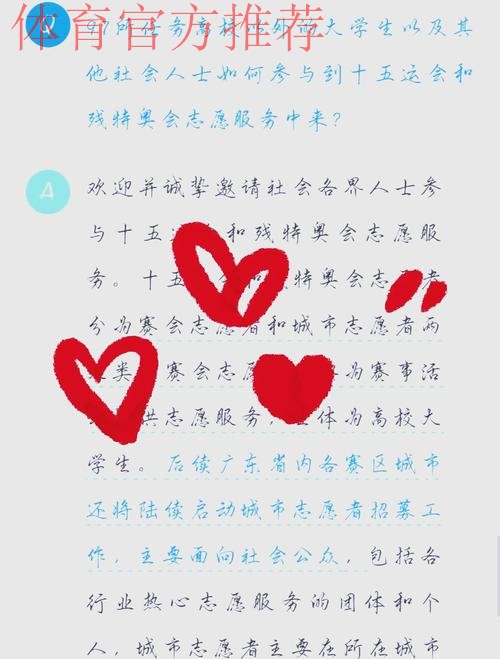 体育官方推荐
Q 97所任务高校以外的大学生以及其
他社会人士如何参与到十五运会和
残特奥会志愿服务中来?
A 欢迎并诚挚邀请社会各界人士参
与十五运 和残特奥会志愿服
务。十五 特奥会志 者
分为赛会志愿者和城市志愿者两
类 赛会志愿 为赛事活
供志愿服务, 体为高校大
学生。后续广东省内各赛区城市
还将陆续启动城市志愿者招募工
作,主要面向社会公众,包括各
行业热心志愿服务的团体和个
人,城市志愿者主要在所在城市